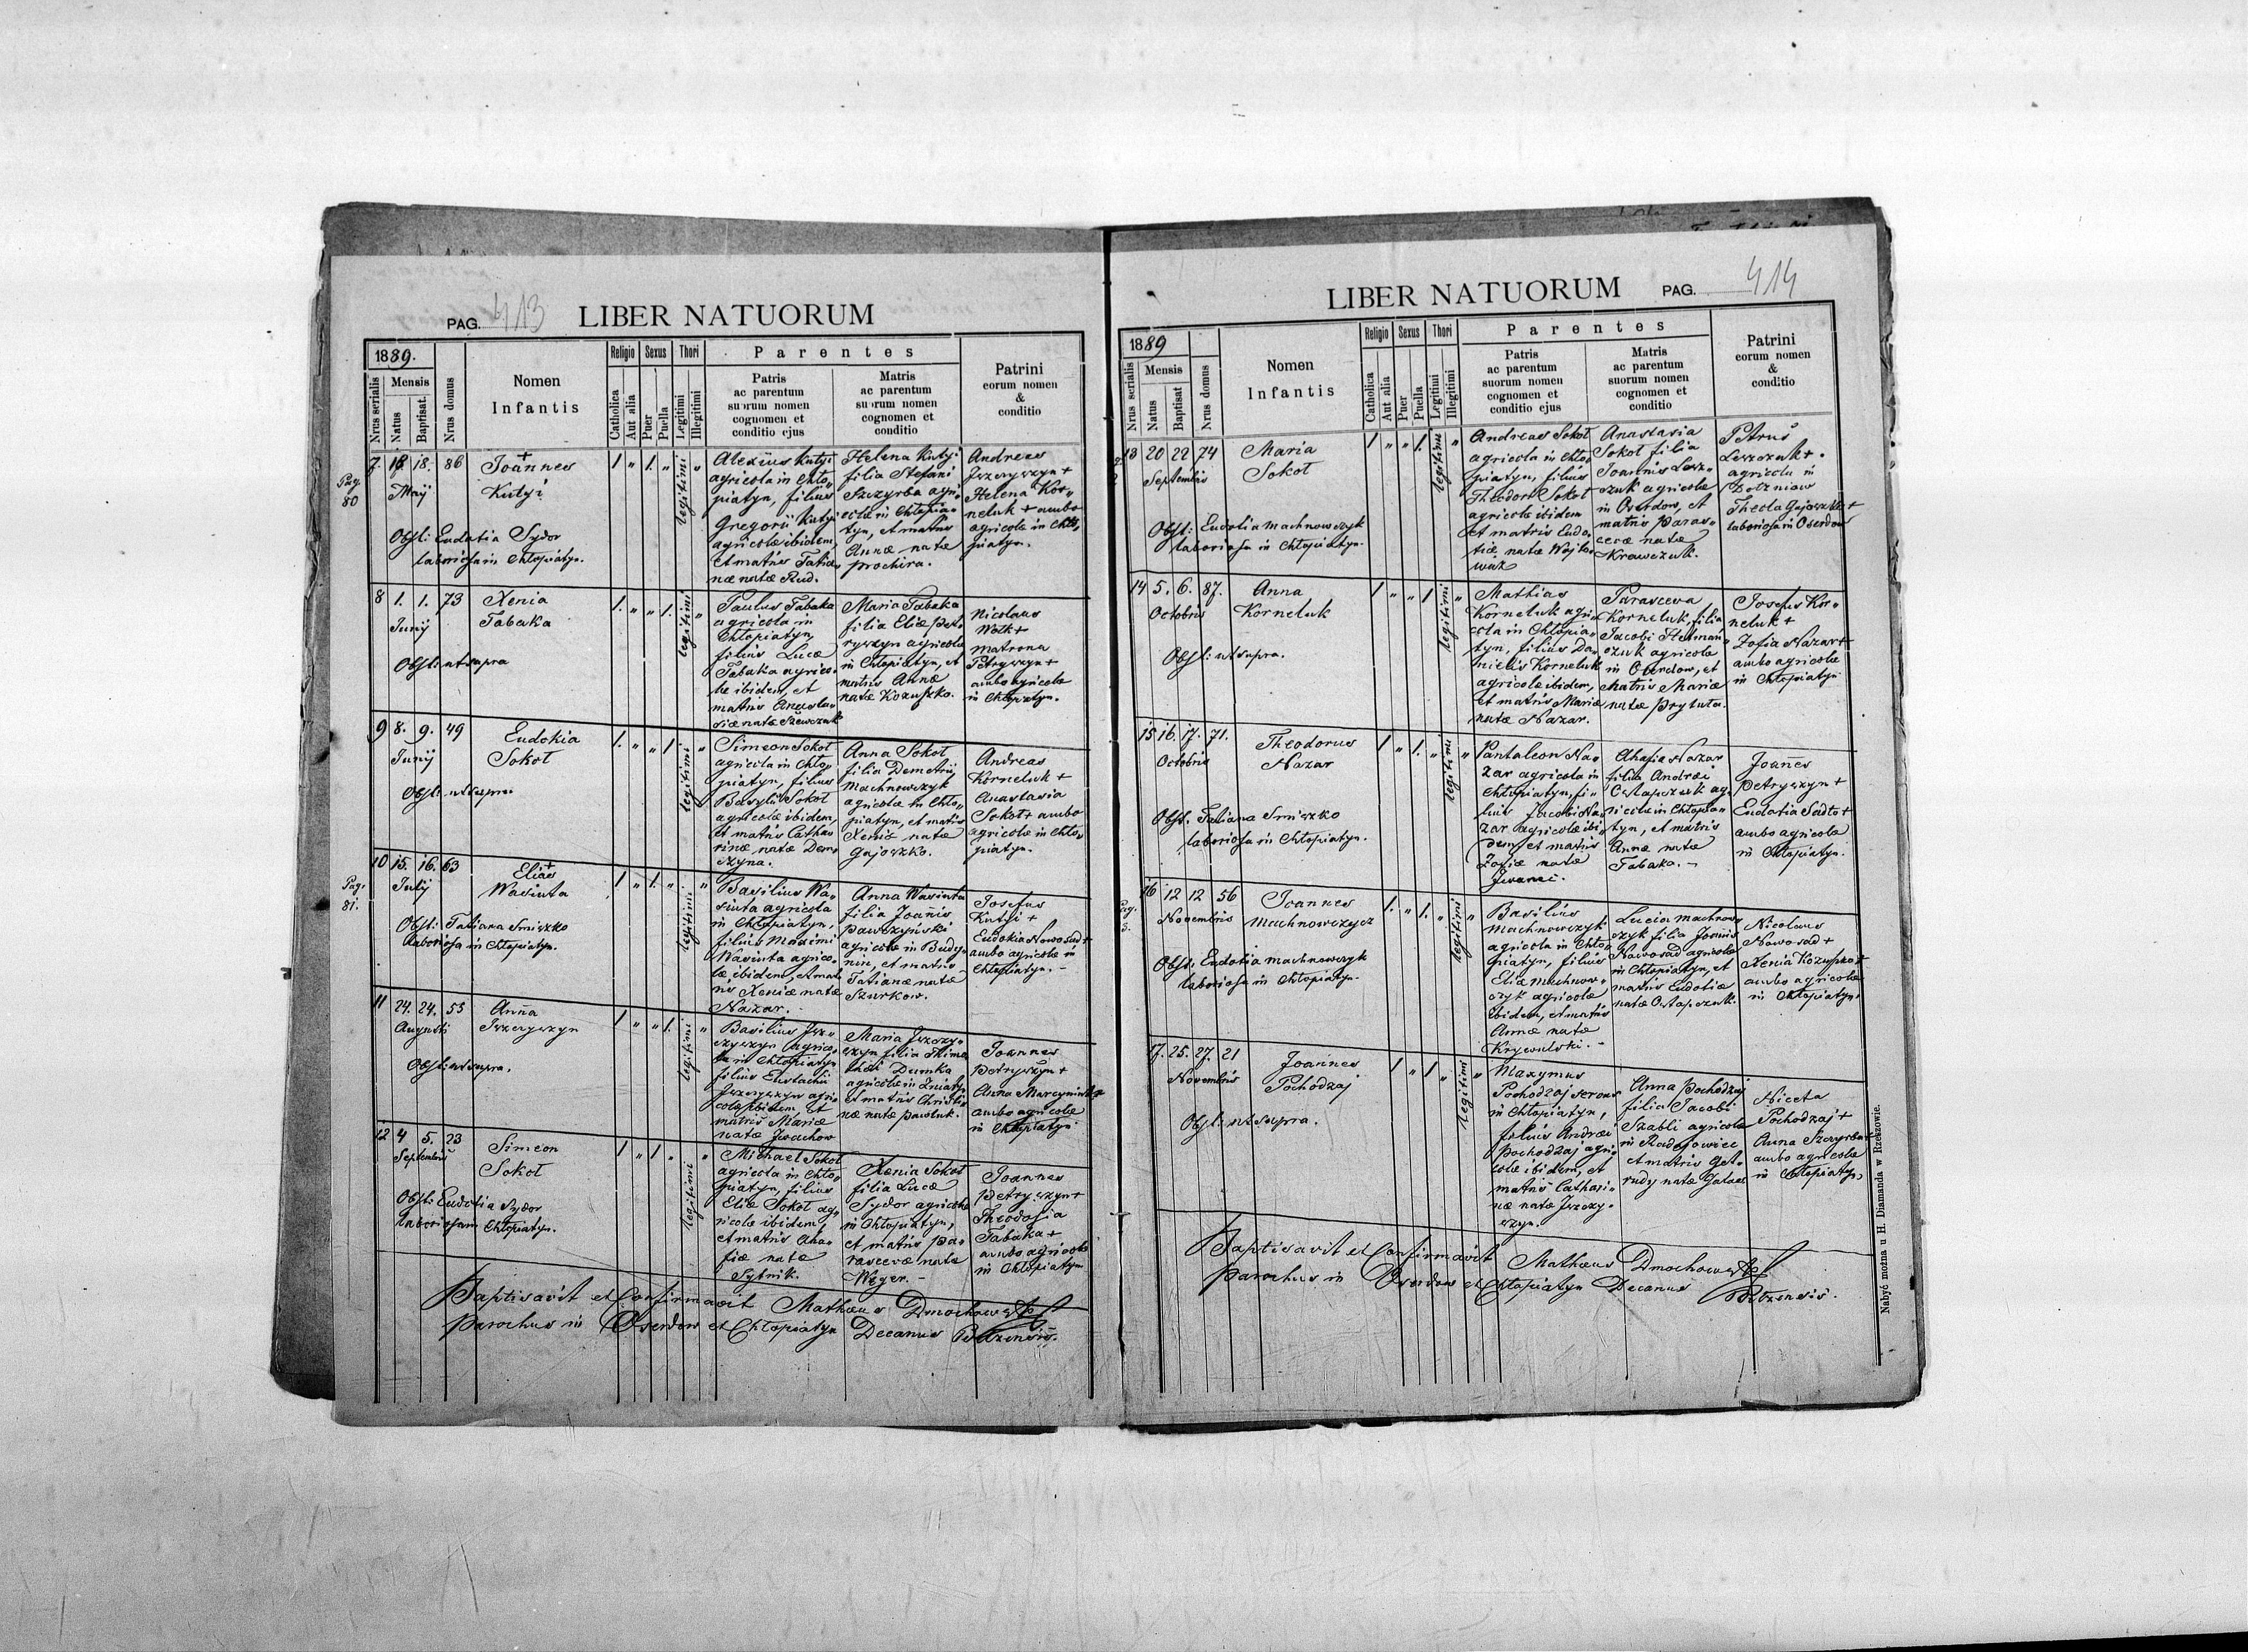 PAG. 413 LIBER NATUORUM
1889.
Nrus serialis
Mensis
Natus
Baptisat.
Nrus domus
Nomen
Infantis
Religio
Catholica
Aut alia
Sexus
Puer
Puella
Thori
Legitimi
Illegitimi
Parentes
Patris
ac parentum
suorum nomen
cognomen et
conditio ejus
Matris
ac parentum
suorum nomen
cognomen et
conditio
Patrini
eorum nomen
&
conditio
Pag.
80
7. 18. 18. 86
Maij
Joannes
Kutyi
Obst: Eudotia Sydor
laboriosa in Chłopiatyn.
1 " 1. " legitimi "
Alexius Kutyi
agricola in Chło„
piatyn, filius
Gregorii Kutyi
agricolæ ibidem,
et matris Tatia„
næ natæ Rud.
Helena Kutyi
filia Stefani
Szczyrba agri„
colæ in Chłopia„
tyn, et matris
Annæ natæ
Prochira.
Andreas
Jszczyszyn +
Helena Kor„
neluk + ambo
agricolæ in Chło„
piatyn.
8 1. 1. 73
Junij
Xenia
Tabaka
Obst: ut supra
1. " " 1. legitimi "
Paulus Tabaka
agricola in
Chłopiatyn,
filius Lucæ
Tabaka agrico„
læ ibidem, et
matris Anasta„
siæ natæ Szewczuk
Maria Tabaka
filia Eliæ Pet„
ryszyn agricolæ
in Chłopiatyn, et
matris Annæ
natæ Kozuszko.
Nicolaus
Wołk +
Matrona
Petryszyn +
ambo agricolæ
in Chłopiatyn.
9 8. 9. 49
Junij
Eudokia
Sokoł
Obst: ut supra
1. " " 1. legitimi "
Simeon Sokoł
agricola in Chło„
piatyn, filius
Basylii Sokoł
agricolæ ibidem,
et matris Catha„
rinæ natæ Dem„
czyna.
Anna Sokoł
filia Demetrij
Machnowczyk
agricolæ in Chło„
piatyn, et matris
Xeniæ natæ
Gajoszko.
Andreas
Korneluk +
Anastasia
Sokoł + ambo
agricolæ in Chło„
piatyn.
Pag.
81.
10 15. 16. 63
Julij
Elias
Wasiuta
Obst: Tatiana Smiszko
laboriosa in Chłopiatyn.
1 " 1. " legitimi "
Basilius Wa„
siuta agricola
in Chłopiatyn,
filius Maximi
Wasiuta agrico„
læ ibidem, et mat„
ris Xeniæ natæ
Nazar.
Anna Wasiuta
filia Joannis
Pawszyński
agricolæ in Budy„
nin, et matris
Tatianæ natæ
Szurkow.
Josefus
Kutyi +
Eudokia Nowosad +
ambo agricolæ in
Chłopiatyn.
11 24. 24. 53
Augusti
Anna
Jszczyszyn
Obst: ut supra.
1 " " 1. legitimi "
Basilius Jsz„
czyszyn agrico„
la in Chłopiatyn
filius Eustachii
Jszczyszyn agri„
colæ ibidem, et
matris Mariæ
natæ Jwachow
Maria Jszczy„
szyn filia Thimo„
thei Dumka
agricolæ in Zniatyn
et matris Christi„
næ natæ Pawluk.
Joannes
Petryszyn +
Anna Marcyniuk +
ambo agricolæ
in Chłopiatyn.
12 4 5. 23
Septembris
Simeon
Sokoł
Obst: Eudotia Sydor
laboriosa in Chłopiatyn.
1 " 1 " legitimi "
Michael Sokoł
agricola in Chło„
piatyn, filius
Eliæ Sokoł ag„
ricolæ ibidem,
et matris Aha„
fiæ natæ
Sytnik.
Xenia Sokoł
filia Lucæ
Sydor agricolæ
in Chłopiatyn,
et matris Pa„
rascevæ natæ
Węger.
Joannes
Petryszyn +
Theodosia
Tabaka +
ambo agricolæ
in Chłopiatyn
Baptisavit et Confirmavit Mathæus Dmochowski
Parochus in Oserdow et Chłopiatyn Decanus Bełzensis.
LIBER NATUORUM PAG. 414
1889
Nrus serialis
Mensis
Natus
Baptisat
Nrus domus
Nomen
Infantis
Religio
Catholica
Aut alia
Sexus
Puer
Puella
Thori
Legitimi
Illegitimi
Parentes
Patris
ac parentum
suorum nomen
cognomen et
conditio ejus
Matris
ac parentum
suorum nomen
cognomen et
conditio
Patrini
eorum nomen
&
conditio
13 20 22 74
Septembris
Maria
Sokoł
Obst: Eudotia Machnowczyk
laboriosa in Chłopiatyn.
1 " " 1. legitimi "
Andreas Sokoł
agricola in Chło„
piatyn, filius
Theodori Sokoł
agricolæ ibidem
et matris Eudo„
tiæ natæ Wojto„
wicz
Anastasia
Sokoł filia
Joannis Lesz„
czuk agricolæ
in Oserdow, et
matris Paras„
cevæ natæ
Krawczuk.
Petrus
Leszczuk +
agricola in
Dołzniow
Thecla Gajoszko +
laboriosa in Oserdow
14 5. 6. 87.
Octobris
Anna
Korneluk
Obst: ut supra.
1 " " 1 legitimi "
Mathias
Korneluk agri„
cola in Chłopia„
tyn, filius Da„
nielis Korneluk
agricolæ ibidem,
et matris Mariæ
natæ Nazar.
Parasceva
Korneluk, filia
Jacobi Hetman„
czuk agricolæ
in Oserdow, et
matris Mariæ
natæ Prytuła.
Josefus Kor„
neluk +
Zofia Nazar +
ambo agricolæ
in Chłopiatyn
15 16. 17. 71.
Octobris
Theodorus
Nazar
Obst: Tatiana Smiszko
laboriosa in Chłopiatyn.
1 " 1. " legitimi "
Pantaleon Na„
zar agricola in
Chłopiatyn, fi„
lius Jacobi Na„
zar agricolæ ibi„
dem, et matris
Zofiæ natæ
Ahafia Nazar
filia Andreæ
Ostapczuk ag„
ricolæ in Chłopia„
tyn, et matris
Annæ natæ
Tabaka.
Joannes
Petryszyn +
Eudotia Sadło +
ambo agricolæ
in Chłopiatyn.
Pag.
3.
16 12 12 56
Novembris
Joannes
Machnowczycz
Obst: Eudotia Machnowczyk
laboriosa in Chłopiatyn.
1. " 1. " legitimi "
Basilius
Machnowczyk
agricola in Chło„
piatyn, filius
Eliæ Machnow„
czyk agricolæ
ibidem, et matris
Annæ natæ
Krywulski.
Lucia Machnow„
czyk filia Joannis
Nawosad agricolæ
in Chłopiatyn, et
matris Eudotiæ
natæ Ostapczuk.
Nicolaus
Nowosad +
Xenia Kozuszko +
ambo agricolæ
in Chłopiatyn.
17. 25. 27. 21
Novembris
Joannes
Pochodzaj
Obst: ut supra.
1 " 1 " legitimi "
Maxymus
Pochodzaj servus
in Chłopiatyn,
filius Andreæ
Pochodzaj agri„
colæ ibidem, et
matris Cathari„
næ natæ Jszczy„
szyn.
Anna Pochodzaj
filia Jacobi
Szabli agricolæ
in Radejowiec
et matris Get„
rudy natæ
Niceta
Pochodzaj +
Anna Szczyrba +
ambo agricolæ
in Chłopiatyn,
Baptisavit et Confirmavit Mathæus Dmochowski
Parochus in Oserdow et Chłopiatyn Decanus Bełzensis.
Nabyć można u H. Diamanda w Rzeszowie.